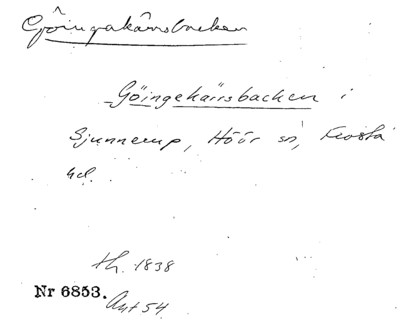 Göingakärrsbacken
Göingekärrsbacken i
Sjunnerup, Höör sn, Frosta
hd.
th. 1838
Nr 6853.
Ant 54